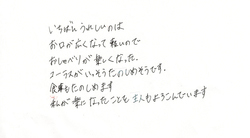 いちばんうれしいのは
お口が広くなって軽いので
おしゃべりが楽しくなった。
コーラスがいっそうたのしめそうです。
食事もたのしめます
私が楽になったことを主人もよろこんでいます